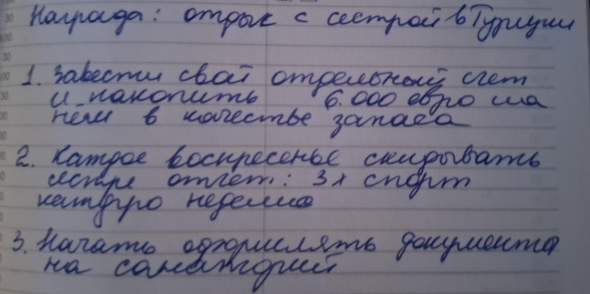 Награда: отдых с сестрой в Турции
1. Завести свой отдельный счет
и накопить 6.000 евро на
нем в качестве запаса
2. Каждое воскресенье скидывать
сестре отчет: 3х спорт
каждую неделю
3. Начать оформлять документы
на санаторий